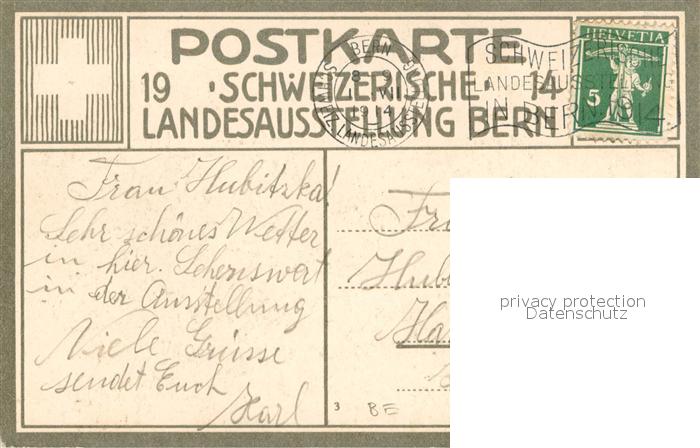 POSTKARTE
19 · SCHWEIZERISCHE · 14
LANDESAUSSTELLUNG BERN
BERN
8. 9
VII
1914
SCHWEIZ. LANDESAUSST
SCHWEIZ
LANDESAUSSTELL
IN BERN 1914
HELVETIA
5
Frau Hubitzka!
Sehr schönes Wetter
in hier. Sehenswert
in der Ausstellung
Viele Grüsse
sendet Euch
Karl
Fr
Hub
Ha
3 BE
privacy protection
Datenschutz